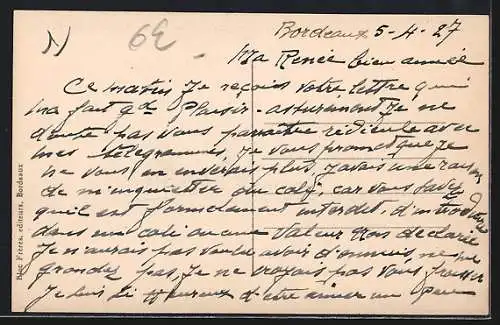 N
6€
Bordeaux 5-4-27
Ma Renée bien aimée
Ce matin je reçois votre lettre qui
ma fait gd plaisir - assurement je ne
doute pas vous paraitre ridicule avec
mes telegrammes, je vous promet que je
ne vous en enverais plus, j'avais une raison
de m'inquietter du colis, car vous savez
quil est formelement interdit, d'introduire
dans un colis aucune valeur non declarée
je n'aurais pas voulu avoir d'ennuis, ne me
grondez pas, je ne voyais pas vous
je suis si heureux d'etre aimer un peu
Bloc Frères, éditeurs, Bordeaux